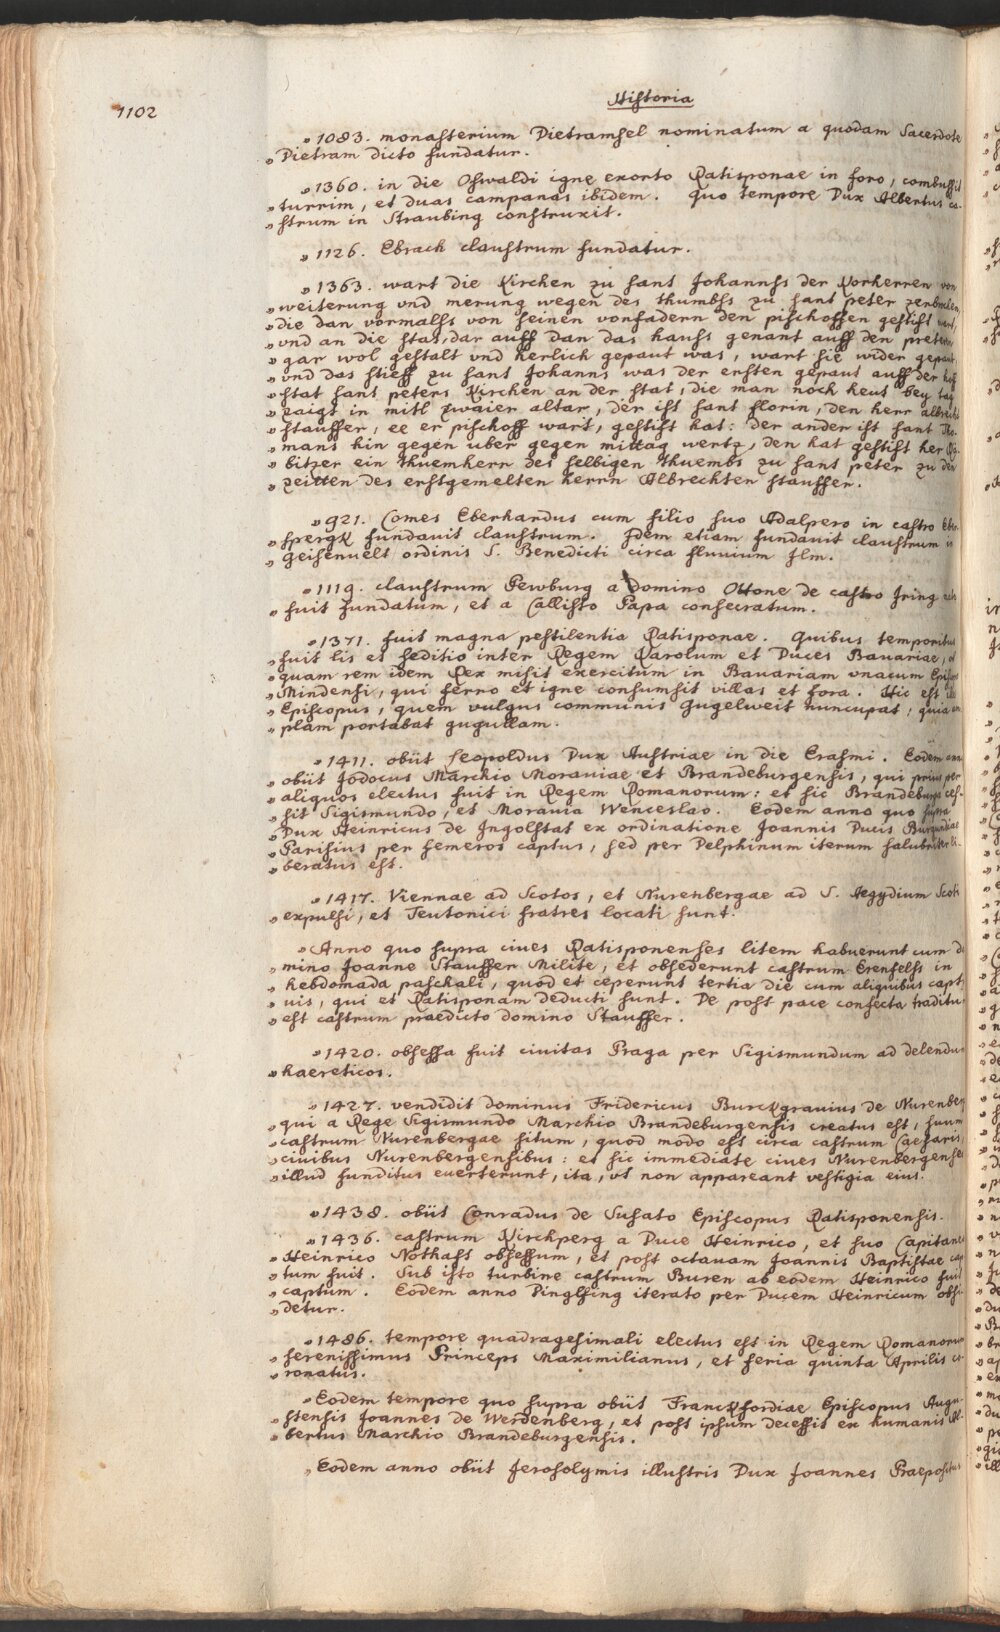 1102
Historia
„1083. monasterium Dietramsel nominatum a quodam Sacerdote
„Dietram dicto fundatur.
„1360. in die Oswaldi igne exorto Ratisponae in foro, combussit
„turrim, et duas campanas ibidem. Quo tempore Dux Albertus ca-
„strum in Straubing construxit.
„1126. Ebrach claustrum fundatur.
„1363. wart die Kirchen zu sant Johannss der Korherren von
„weiterung vnd merung wegen des thumbss zu sant peter zerbrochen,
„die dan vormalss von seinen vonfadern den pischoffen gestift wart,
„vnd an die stat, dar auff dan das hauss genant auff den
„gar wol gestalt vnd herlich gepaut was, wart sie wider gepaut.
„vnd das stieff zu sant Johanns was der ersten gepaut auff der hoff
„stat sant peters Kirchen an der stat, die man noch heut bey tag
„zaigt in mitl zwaier altar, der ist sant florin, den herr albrecht
„stauffer, ee er pischoff wart, gestift hat: der ander ist sant Tho-
„mans hin gegen uber gegen mittag wertz, den hat gestift her
„bitzer ein thuemhern des selbigen thuembs zu sant peter zu den
„zeitten des erstgemelten herrn Albrechten stauffer.
„921. Comes Eberhardus cum filio suo Adalpero in castro Eber-
„spergk fundauit claustrum. Idem etiam fundauit claustrum in
„Geisenuelt ordinis S. Benedicti circa fluuium Ilm.
„1119. claustrum Pewburg a Domino Ottone de castro Iring
„fuit fundatum, et a Callisto Papa consecratum.
„1371. fuit magna pestilentia Ratisponae. Quibus temporibus
„fuit lis et seditio inter Regem Karolum et Duces Bauariae,
„quam rem idem Rex misit exercitum in Bauariam vnacum Episcopo
„Mindensi, qui ferro et igne consumsit villas et fora. Hic est ille
„Episcopus, quem vulgus communis Gugelweit nuncupat, quia am-
„plam portabat gugullam.
„1411. obiit Leopoldus Dux Austriae in die Erasmi. Eodem anno
„obiit Jodocus Marchio Morauiae et Brandeburgensis, qui prius per
„aliquos electus fuit in Regem Romanorum: et sic Brandeburga ces-
„sit Sigismundo, et Morauia Wenceslao. Eodem anno quo supra
„Dux Heinricus de Ingolstat ex ordinatione Joannis Ducis Burgundiae
„Parisius per semeros captus, sed per Delphinum iterum salubriter li-
„beratus est.
„1417. Viennae ad Scotos, et Nurenbergae ad S. Aegydium Scoti
„expulsi, et Teutonici fratres locati sunt.
„Anno quo supra ciues Ratisponenses litem habuerunt cum do-
„mino Joanne Stauffer Milite, et obsederunt castrum Erenfelss in
„hebdomada paschali, quod et ceperunt tertia die cum aliquibus capti-
„uis, qui et Ratisponam deducti sunt. De post pace confecta traditum
„est castrum praedicto domino Stauffer.
„1420. obsessa fuit ciuitas Praga per Sigismundum ad delendum
„haereticos.
„1427. vendidit dominus Fridericus Burckgrauius de Nurenberg
„qui a Rege Sigismundo Marchio Brandeburgensis creatus est, suum
„castrum Nurenbergae situm, quod modo est circa castrum Caesaris,
„ciuibus Nurenbergensibus: et sic immediate ciues Nurenbergenses
„illud funditus euerterunt, ita, vt non appareant vestigia eius.
„1438. obiit Conradus de Susato Episcopus Ratisponensis.
„1436. castrum Kirchperg a Duce Heinrico, et suo Capitaneo
„Heinrico Nothafft obsessum, et post octauam Joannis Baptistae cap-
„tum fuit. Sub isto turbine castrum Buren ab eodem Heinrico fuit
„captum. Eodem anno Dinglfing iterato per Ducem Heinricum obsi-
„detur.
„1486. tempore quadragesimali electus est in Regem Romanorum
„serenissimus Princeps Maximilianus, et feria quinta Aprilis co-
„ronatus.
„Eodem tempore quo supra obiit Franckfordiae Episcopus Augu-
„stensis Joannes de Werdenberg, et post ipsum decessit ex humanis Al-
„bertus Marchio Brandeburgensis.
„Eodem anno obiit Jerosolymis illustris Dux Joannes Praepositus